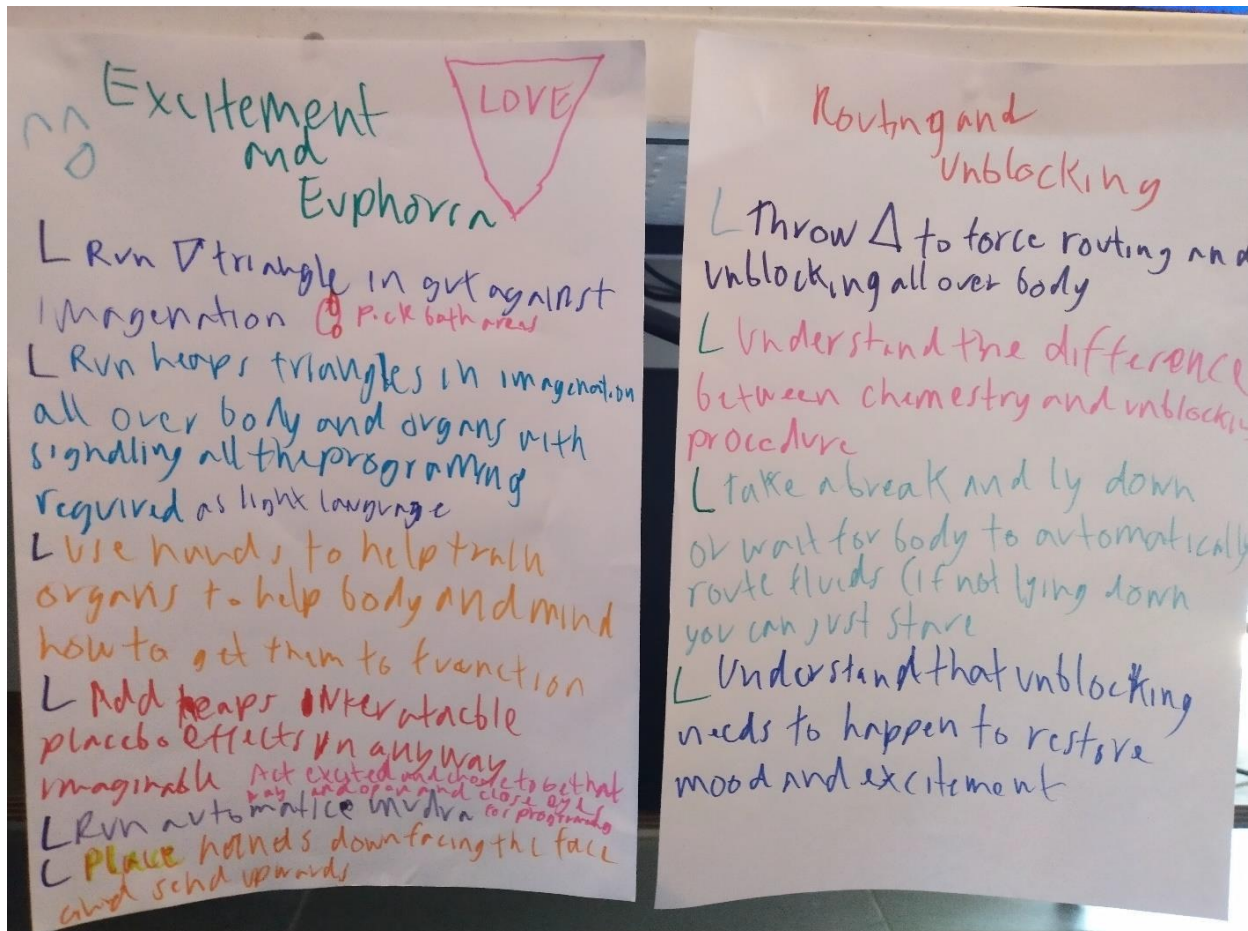 Excitement
and
Euphoria
LOVE
Run ▽ triangle in gut against
imagenation Pick both areas
Run heaps triangles in imagenation
all over body and organs with
signalling all the programing
required as light language
Use hands to help train
organs to help body and mind
how to get them to function
Add heaps
placebo effects in any way
imaginable Act excited and chose to be that
way and open and close eyes
Run automatice mudra for programing
Place hands down facing the face
and send upwards
Routing and
unblocking
Throw △ to force routing and
unblocking all over body
Understand the difference
between chemestry and unblocking
procedure
take a break and ly down
or wait for body to automatically
route fluids (if not lying down
you can just stare
Understand that unblocking
needs to happen to restore
mood and excitement